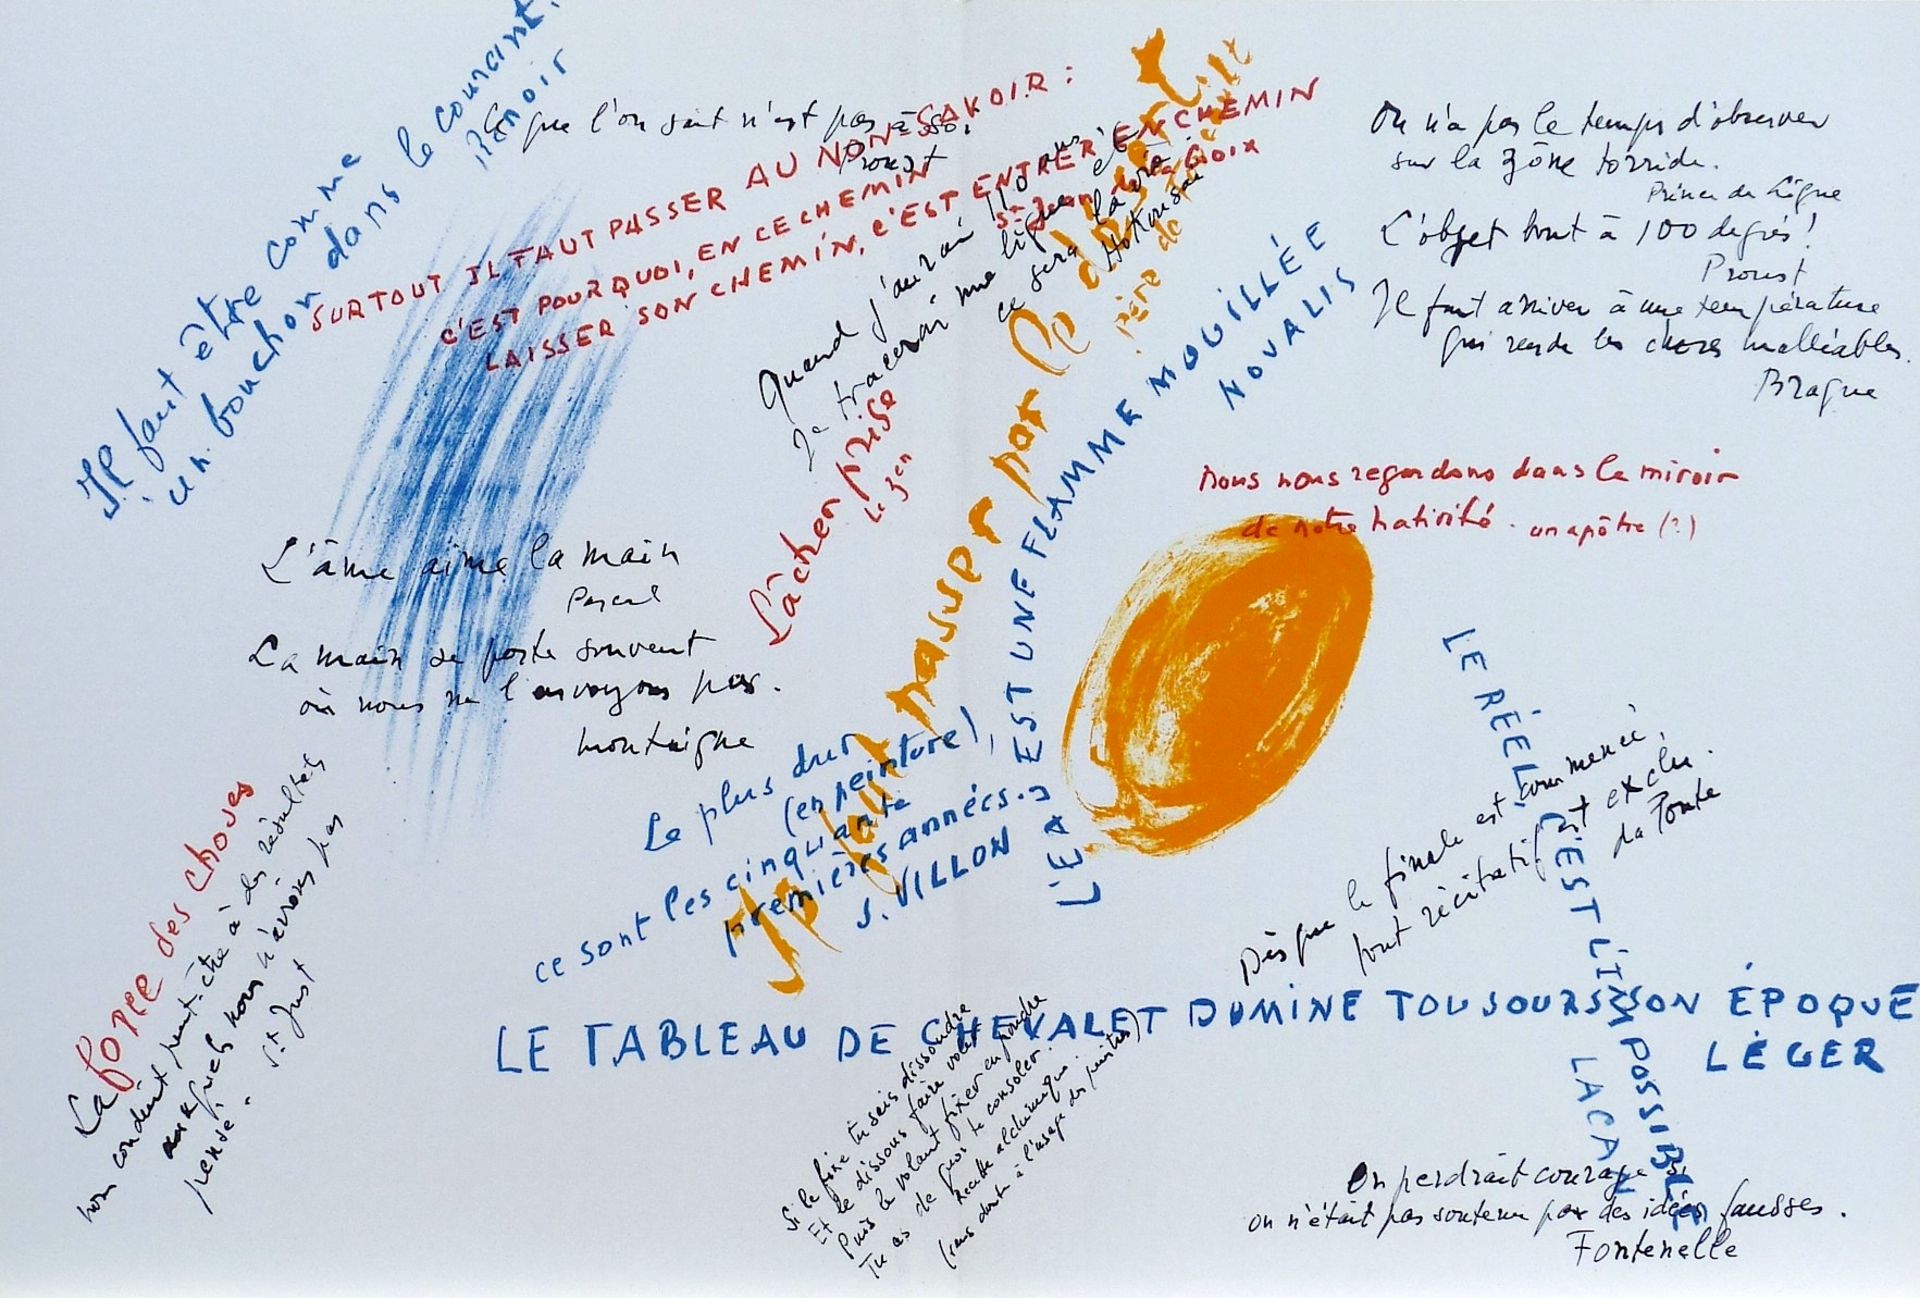 Il faut être comme
un bouchon dans le courant.
Renoir
Ce que l'on sait n'est pas à soi
Proust
SURTOUT IL FAUT PASSER AU NON-SAVOIR :
C'EST POURQUOI, EN CE CHEMIN
LAISSER SON CHEMIN, C'EST ENTRER EN CHEMIN
St Jean de la Croix
Quand j'aurai 110 ans
Je tracerai une ligne et
ce sera la vie.
Hokousai
Il faut passer par le
Père de
L'EAU EST UNE FLAMME MOUILLÉE
NOVALIS
On n'a pas le temps d'observer
sur la zône torride.
Prince de Ligne
L'objet tout à 100 degrés!
Proust
Il faut arriver à une température
qui rende les choses malléables.
Braque
Lâcher prise
Le Zen
nous nous regardons dans le miroir
de notre nativité. un apôtre (?)
L'âme aime la main
Pascal
La main se porte souvent
où nous ne l'envoyons pas.
Montaigne
Le plus dur
(en peinture),
ce sont les cinquante
premières années.
J. VILLON
LE RÉEL, C'EST L'IMPOSSIBLE
LACAN
Dès que le finale est commencé,
tout récitatif est exclu.
da Ponte
La force des choses
nous conduit peut-être à des résultats
auxquels nous n'avions pas
pensé.
St Just
LE TABLEAU DE CHEVALET DOMINE TOUJOURS SON ÉPOQUE
LÉGER
Si le fixe tu sais dissoudre
Et le dissous faire volet
Puis le volant fixer en poudre
Tu as de quoi te consoler.
Recette alchimique
(sans doute à l'usage des peintres)
On perdrait courage si
on n'était pas soutenu par des idées fausses.
Fontenelle